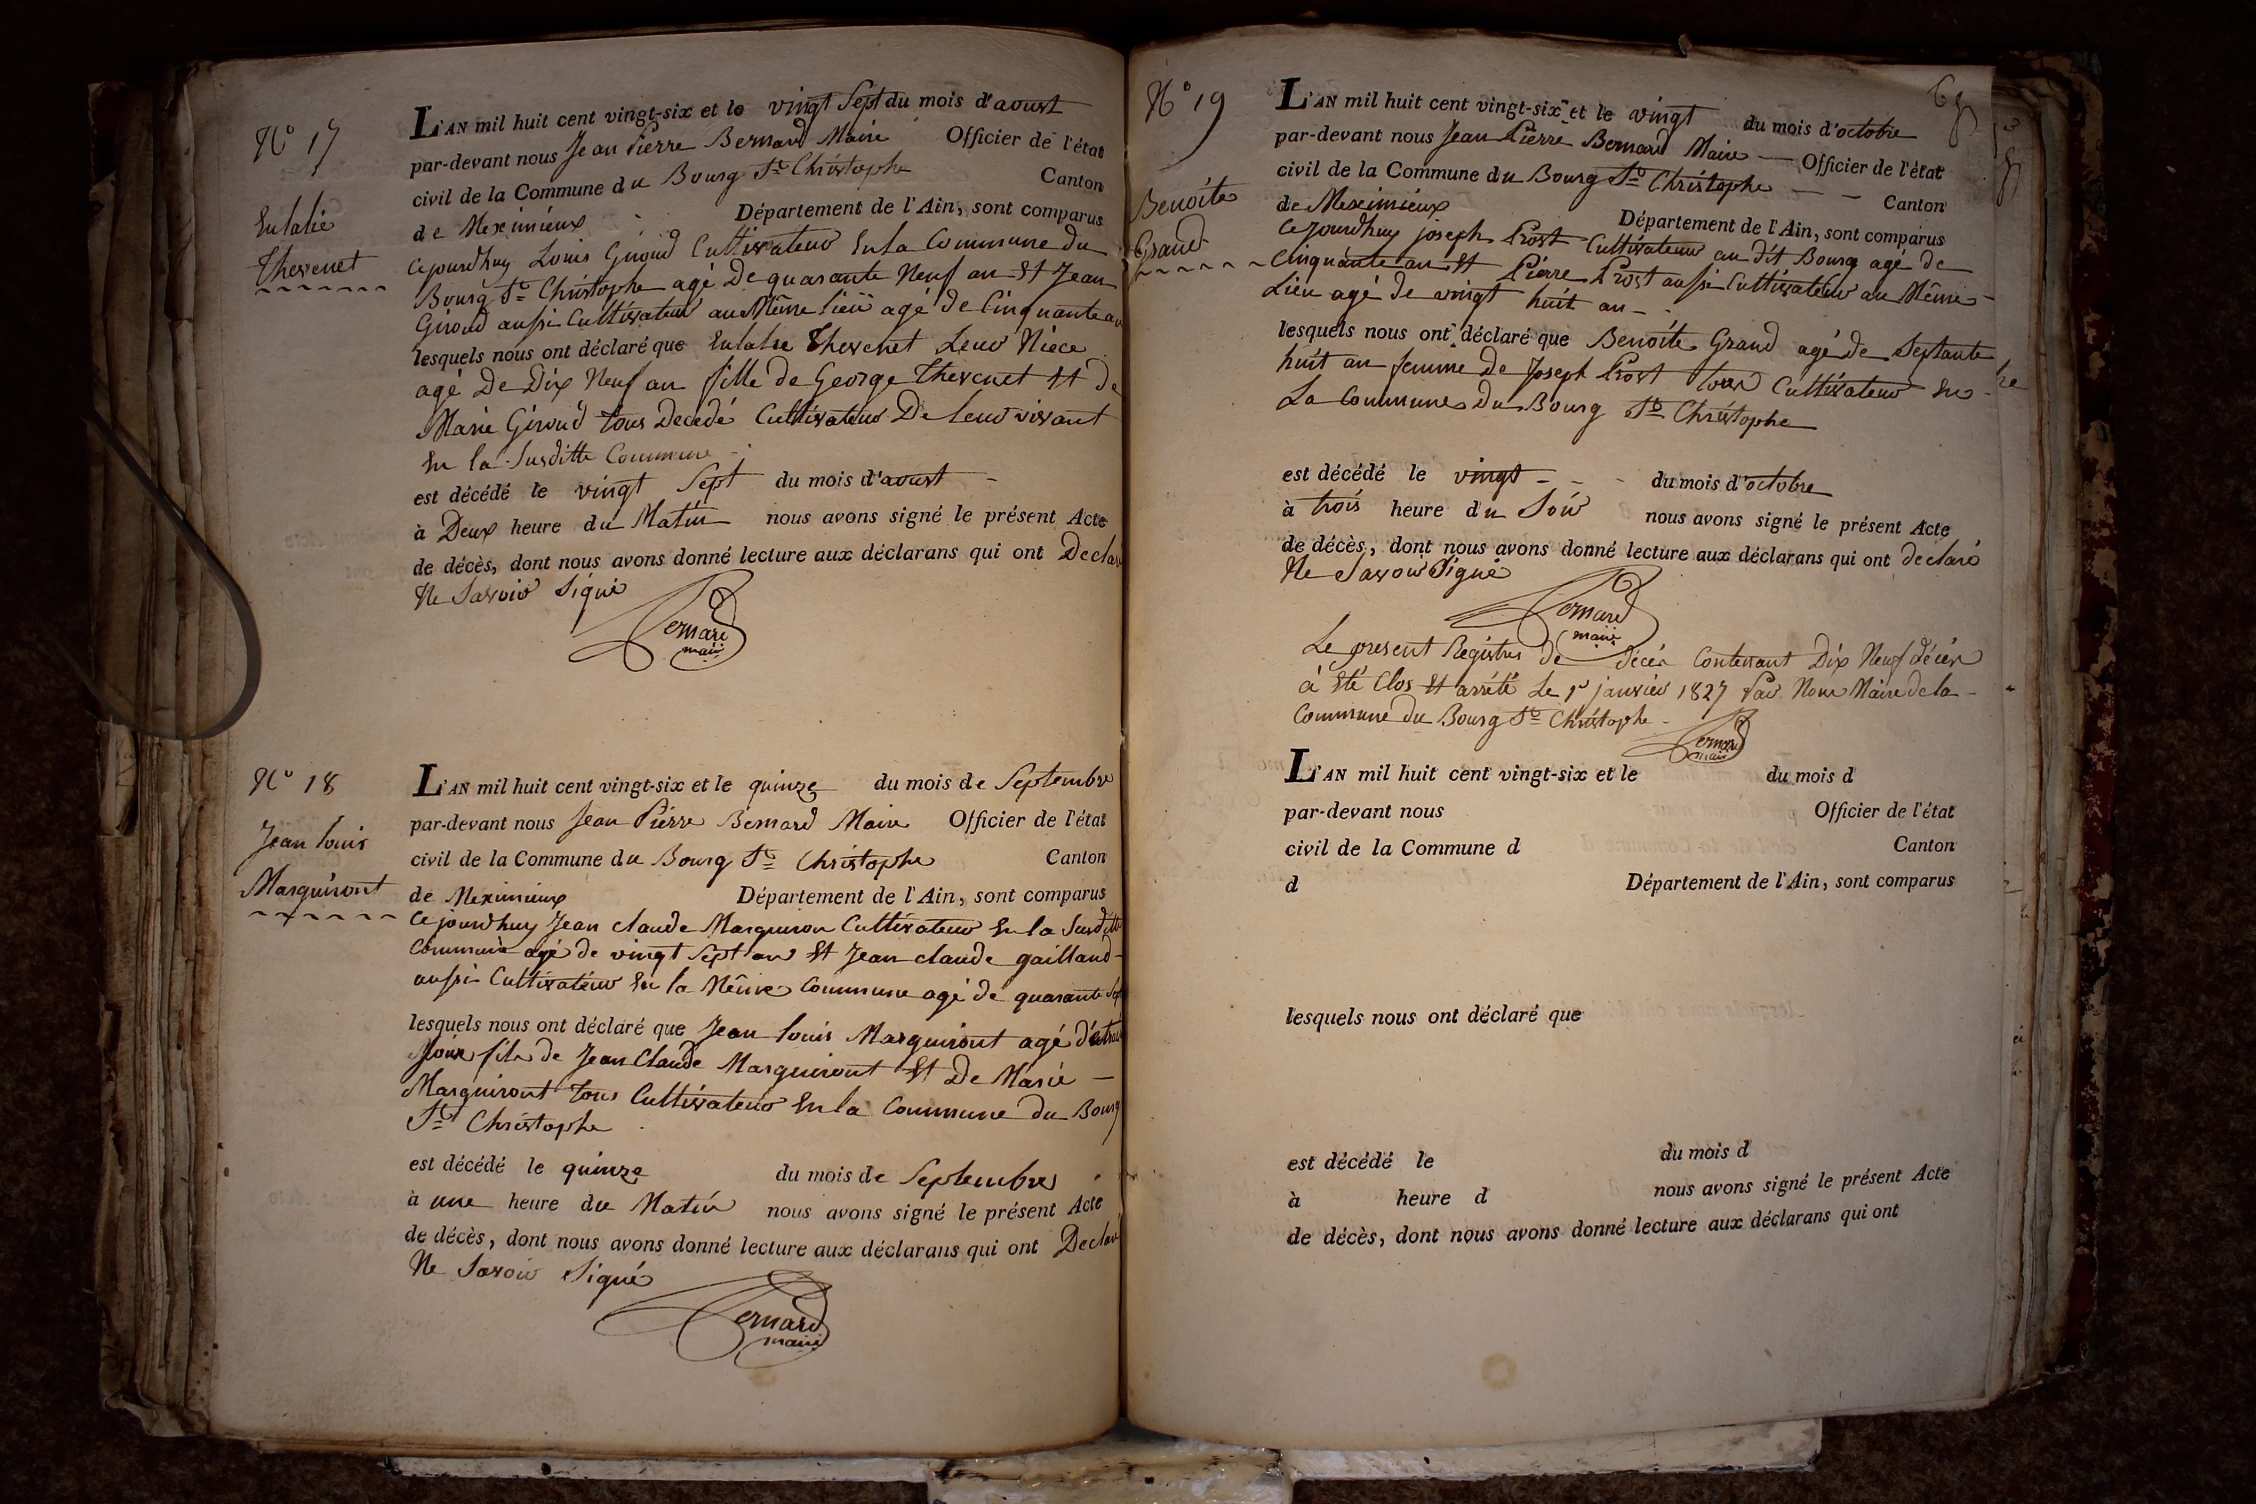 N° 17
Eulalie
Thevenet
L'AN mil huit cent vingt-six et le vingt Sept du mois d'aoust
par-devant nous Jean Pierre Bernard Maire Officier de l'état
civil de la Commune du Bourg St Christophe Canton
de Meximieux Département de l'Ain, sont comparus
Cejourdhuy Louis Giroud Cultivateur En la Commune du
Bourg St Christophe agé De quarante Neuf an Et Jean
Giroud aussi Cultivateur au Même lieu agé de Cinquante an
lesquels nous ont déclaré que Eulalie Thevenet Leur Niéce
agé De Dix Neuf an fille de George Thevenet Et de
Marie Giroud tous Decedé Cultivateur De leur vivant
En la Susditte Commune
est décédé le vingt Sept du mois d'aoust
à Deux heure du Matin nous avons signé le présent Acte
de décès, dont nous avons donné lecture aux déclarans qui ont Declaré
Ne Savoir Signé
Bernard
maire
N° 18
Jean Louis
Marguiront
L'AN mil huit cent vingt-six et le quinze du mois de Septembre
par-devant nous Jean Pierre Bernard Maire Officier de l'état
civil de la Commune du Bourg St Christophe Canton
de Meximieux Département de l'Ain, sont comparus
Cejourdhuy Jean claude Marguiron Cultivateur En la Susditte
Commune agé de vingt Sept an Et Jean claude gailland
aussi Cultivateur En la Même Commune agé de quarante Sept
lesquels nous ont déclaré que Jean Louis Marguiront agé d'
Mois fils de Jean Claude Marguiront Et De Marie
Marguiront tous Cultivateur En la Commune du Bourg
St Christophe
est décédé le quinze du mois de Septembre
à une heure du Matin nous avons signé le présent Acte
de décès, dont nous avons donné lecture aux déclarans qui ont Declaré
Ne Savoir Signé
Bernard
maire
N° 19
Benoite
Grand
L'AN mil huit cent vingt-six et le vingt du mois d'octobre
par-devant nous Jean Pierre Bernard Maire Officier de l'état
civil de la Commune du Bourg St Christophe Canton
de Meximieux Département de l'Ain, sont comparus
Cejourdhuy joseph Prost Cultivateur au dit Bourg agé de
Cinquante an Et Pierre Prost aussi Cultivateur au Même
Lieu agé de vingt huit an
lesquels nous ont déclaré que Benoite Grand agé de Septante
huit an femme De Joseph Prost tous Cultivateur En
La Commune Du Bourg St Christophe
est décédé le vingt du mois d'octobre
à trois heure du Soir nous avons signé le présent Acte
de décès, dont nous avons donné lecture aux déclarans qui ont declaré
Ne Savoir Signé
Bernard
maire
Le present Registre de décés Contenant Dix Neuf décés
à Eté Clos Et arrété Le 1er janvier 1827 Par Nous Maire de la
Commune du Bourg St Christophe
Bernard
maire
L'AN mil huit cent vingt-six et le du mois d
par-devant nous Officier de l'état
civil de la Commune d Canton
d Département de l'Ain, sont comparus
lesquels nous ont déclaré que
est décédé le du mois d
à heure d nous avons signé le présent Acte
de décès, dont nous avons donné lecture aux déclarans qui ont